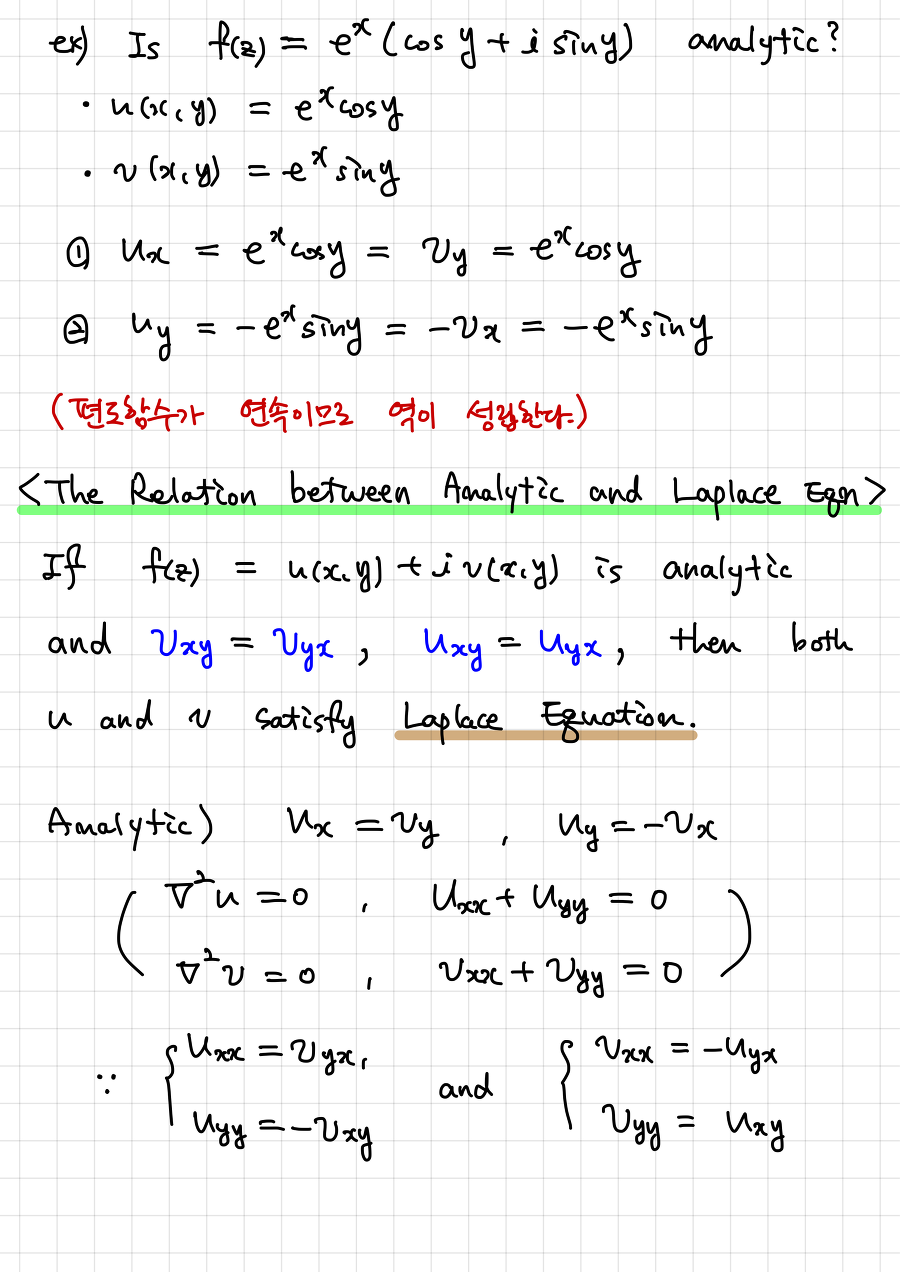 ex) Is f(z) = e^x (cos y + i sin y) analytic?
· u(x, y) = e^x cos y
· v(x, y) = e^x sin y
① u_x = e^x cos y = v_y = e^x cos y
② u_y = -e^x sin y = -v_x = -e^x sin y
(편도함수가 연속이므로 역이 성립한다.)
<The Relation between Analytic and Laplace Eqn>
If f(z) = u(x, y) + i v(x, y) is analytic
and v_xy = v_yx , u_xy = u_yx , then both
u and v satisfy Laplace Equation.
Analytic) u_x = v_y , u_y = -v_x
( ∇²u = 0 , u_xx + u_yy = 0
∇²v = 0 , v_xx + v_yy = 0 )
∵ { u_xx = v_yx, and { v_xx = -u_yx
u_yy = -v_xy v_yy = u_xy